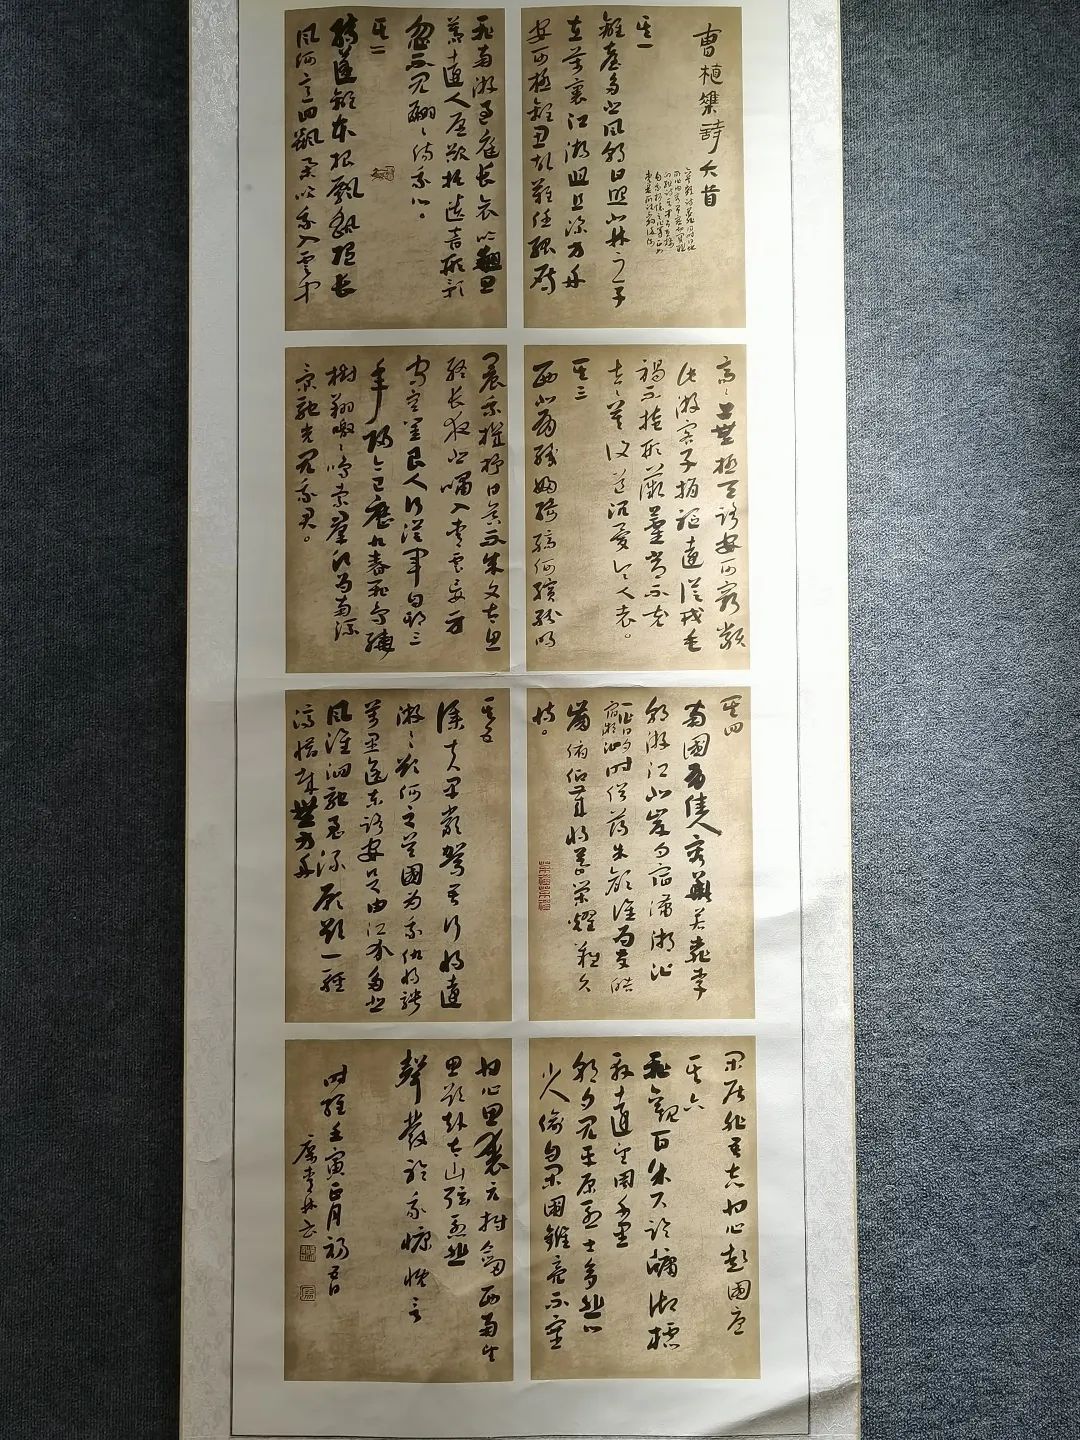 曹植雜詩六首
其一
離臺多悲風朝日照北林之子
在萬裏江湖迥且深方舟
安可極離思故難任孤雁
飛南遊過庭長哀吟翹思
慕遠人愿欲托遺音形影
忽不見翩々傷我心。
其二
轉蓬離本根飄飖隨長
風何意回飆舉吹我入雲中
高々上無極天路安可窮類
此遊客子捐軀遠從戎毛
褐不掩形薇藿常不充
去々莫復道沉憂令人老。
其三
西北有織婦綺縞何繽紛明
晨秉機杼日昃不成文太息
終長夜悲嘯入青雲妾身
守空閨良人行從軍自期三
年歸今已歷九春飛鳥繞
樹翔噭々鳴索羣願為南流
景馳光見我君。
其四
南國有佳人容華若桃李
朝遊江北岸夕宿瀟湘沚
時俗薄朱顏誰為發皓
齒俯仰歲將暮榮耀難久
恃。
其五
僕夫早嚴駕吾行將遠
遊々欲何之吳國為我仇將騁
萬里途東路安足由江介多悲
風淮泗馳急流願欲一輕
濟惜哉無方舟
閑居非吾志甘心赴國憂
其六
飛觀百余尺臨牖御欞
軒遠望周千里
朝夕見平原烈士多悲心
小人偷自閑國雠亮不塞
甘心思喪元拊劍西南望
思欲赴太山弦急悲
聲發聆我慷慨言
時維壬寅正月初吉